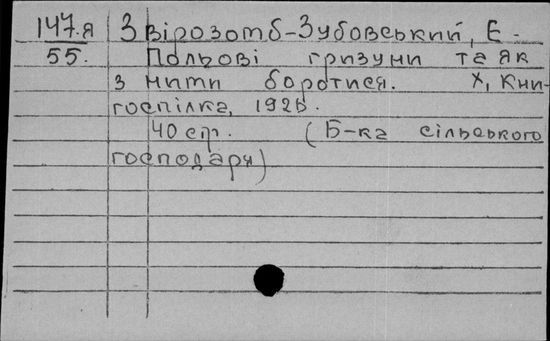 147.я Звірозомб-Зубовський, Є.
55. Польові гризуни та як
з ними боротися. Х, Кни-
госпілка, 1926.
40 ст. (Б-ка сільського
господаря)